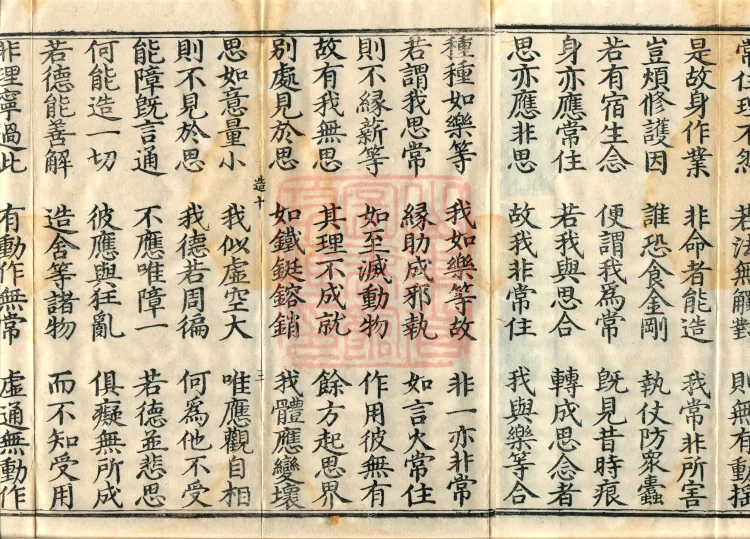 常住理不然 若法無觸對 則無有動搖
是故身作業 非命者能造 我常非所害
豈煩修護因 誰恐食金剛 執仗防衆蠹
若有宿生念 便謂我爲常 旣見昔時痕
身亦應常住 若我與思合 轉成思念者
思亦應非思 故我非常住 我與樂等合
種種如樂等 我如樂等故 非一亦非常
若謂我思常 緣助成邪執 如言火常住
則不緣薪等 如至滅動物 作用彼無有
故有我無思 其理不成就 餘方起思界
別處見於思 如鐵鋌鎔銷 我體應變壞
造十 三
思如意量小 我似虛空大 唯應觀自相
則不見於思 我德若周徧 何爲他不受
能障旣言通 不應唯障一 若德並悲思
何能造一切 彼應與狂亂 俱癡無所成
若德能善解 造舍等諸物 而不知受用
非理寧過此 有動作無常 虛通無動作